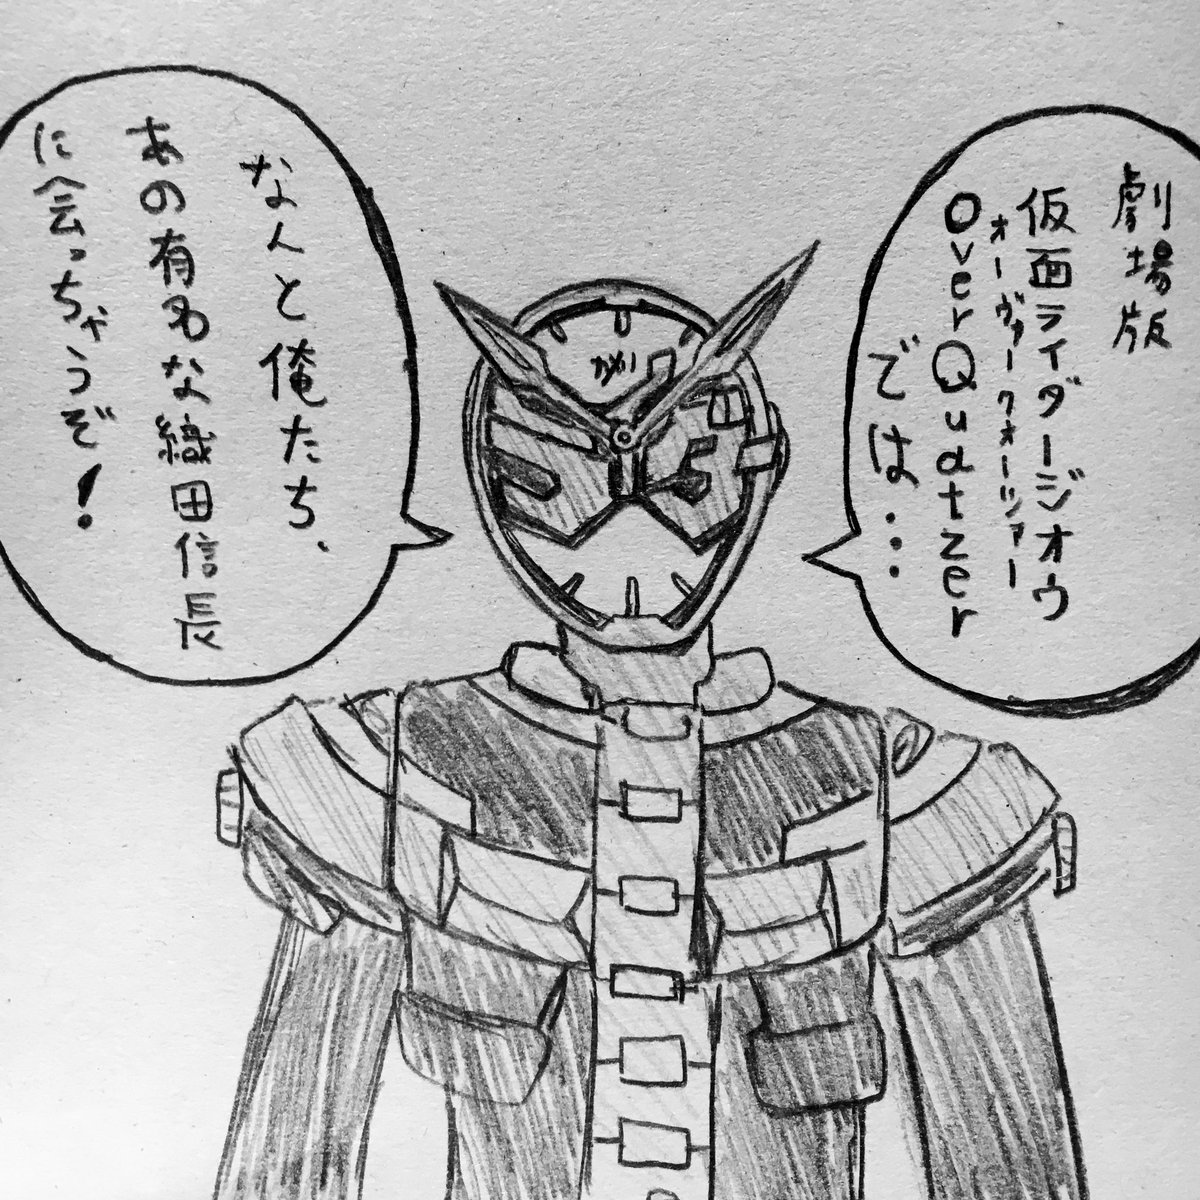 劇場版
仮面ライダージオウ
オーヴァークォーツァー
Over Quatzer
では…
なんと俺たち、
あの有名な織田信長
に会っちゃうぞ!
カメン